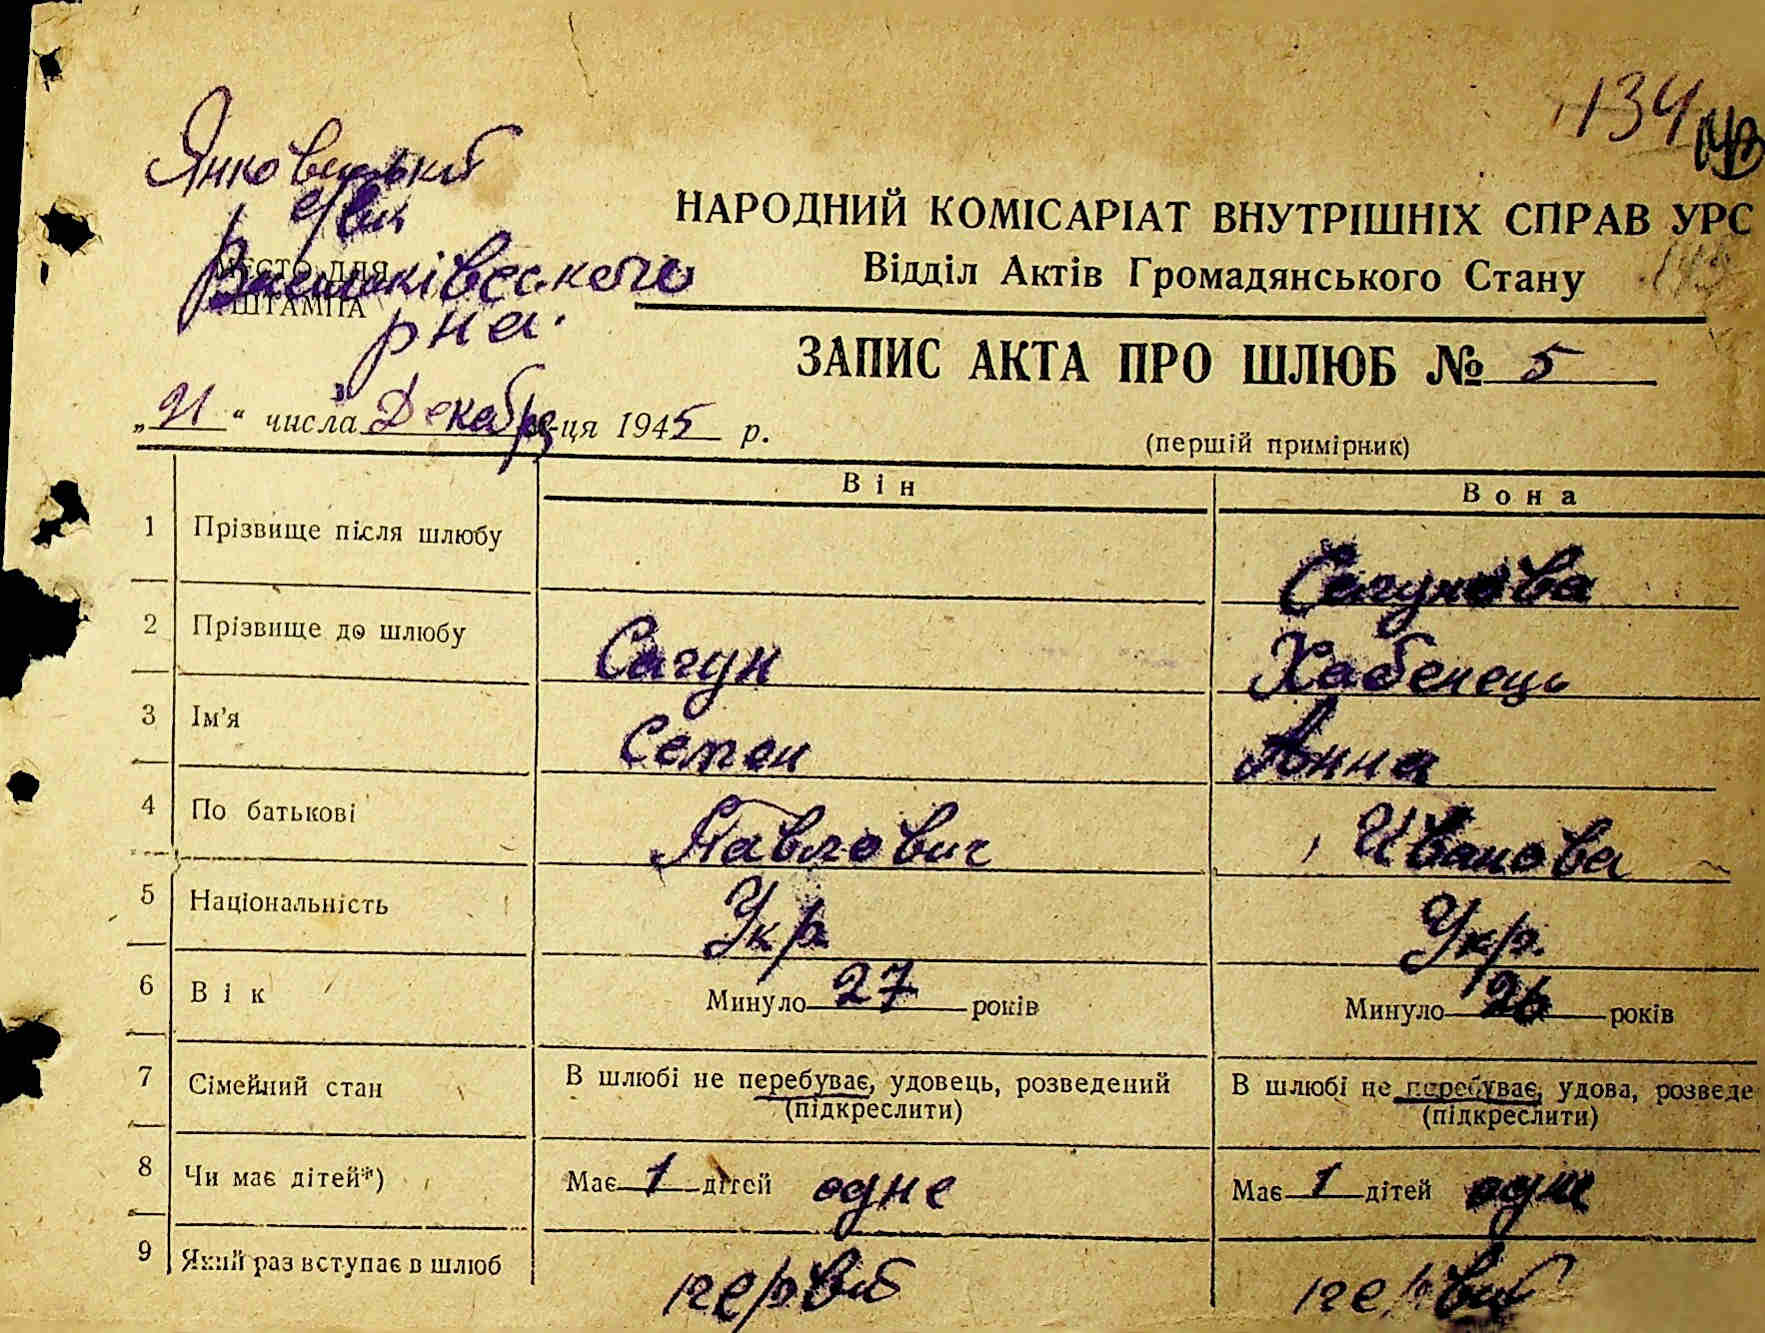 134
Янковецький
НАРОДНИЙ КОМІСАРІАТ ВНУТРІШНІХ СПРАВ УРС
Відділ Актів Громадянського Стану
МЕСТО ДЛЯ
ШТАМПА
рна.
ЗАПИС АКТА ПРО ШЛЮБ № 5
„21“ числа Декабря ця 1945 р.
(першій примірник)
Він Вона
1 Прізвище після шлюбу Сагунова
2 Прізвище до шлюбу Сагун Хабенець
3 Ім'я Семен Анна
4 По батькові Павлович Иванова
5 Національність Укр Укр.
6 Вік Минуло 27 років Минуло 26 років
7 Сімейний стан В шлюбі не перебуває, удовець, розведений В шлюбі не перебуває, удова, розведе
(підкреслити) (підкреслити)
8 Чи має дітей*) Має 1 дітей одне Має 1 дітей одне
9 Який раз вступає в шлюб первий первий